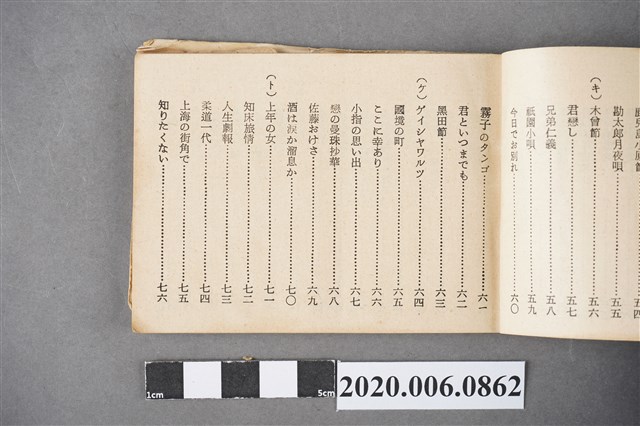 勘太郎月夜唄……五五
(キ)
木曾節……五六
君戀し……五七
兄弟仁義……五八
祇園小唄……五九
今日でお別れ……六〇
霧子のタンゴ……六一
君といつまでも……六二
黑田節……六三
(ケ)
ゲイシヤワルツ……六四
國境の町……六五
ここに幸あり……六六
小指の思い出……六七
戀の曼珠抄華……六八
佐藤おけさ……六九
酒は涙か溜息か……七〇
(ト)
上年の女……七一
知床旅情……七二
人生劇報……七三
柔道一代……七四
上海の街角で……七五
知りたくない……七六
1cm
5cm
2020.006.0862